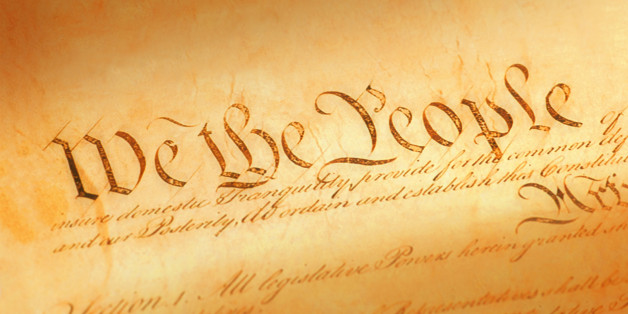 We the People
insure domestic Tranquility, provide for the common def
and our Posterity, do ordain and establish this Constitu
Section 1. All legislative Powers herein granted
Representatives shall be